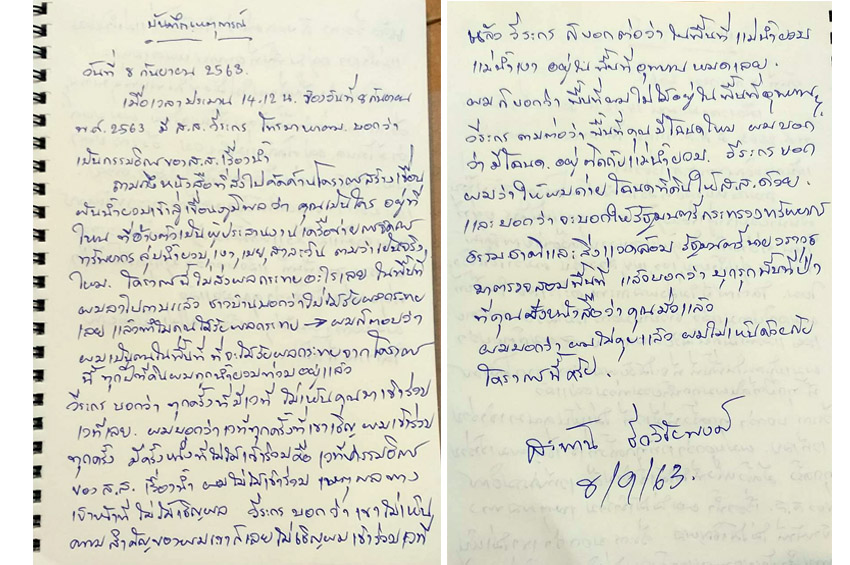 บันทึกเหตุการณ์
วันที่ 8 กันยายน 2563.
เมื่อเวลาประมาณ 14.12 น. ของวันที่ 8 กันยายน
พ.ศ. 2563 มี ส.ส. วีระกร โทรมาหาผม. บอกว่า
เป็นกรรมาธิการของ ส.ส. เรื่องน้ำ
ถามถึงหนังสือที่ส่งไปคัดค้านโครงการสร้างเขื่อน
ผันน้ำยวมเข้าสู่เขื่อนภูมิพลว่า คุณเป็นใคร อยู่ที่
ไหน ที่อ้างตัวเป็นผู้ประสานงานเครือข่าย
ทรัพยากร ลุ่มน้ำยวม, เงา, เมย, สาละวิน ถามว่าเป็นจริง
ไหม. โครงการนี้ไม่ส่งผลกระทบอะไรเลย ในพื้นที่
ผมลงไปถามแล้ว ชาวบ้านบอกว่าไม่ได้รับผลกระทบ
เลย แล้วทำไมคุณได้รับผลกระทบ → ผมก็ตอบว่า
ผมเป็นคนในพื้นที่ ที่จะได้รับผลกระทบจากโครงการ
นี้ ทุกปีที่ดินผมถูกน้ำยวมท่วมอยู่แล้ว
วีระกร บอกว่า ทุกครั้งที่มีเวที ไม่เห็นคุณมาเข้าร่วม
เวทีเลย. ผมบอกว่าเวทีทุกครั้งที่เขาเชิญ ผมเข้าร่วม
ทุกครั้ง มีครั้งหนึ่งที่ไม่ได้เข้าร่วมคือ เวทีกรรมาธิการ
ของ ส.ส. เรื่องน้ำ ผมไม่ได้เข้าร่วม เหตุผลทาง
เจ้าหน้าที่ ไม่ได้เชิญผม วีระกร บอกว่า เขาไม่เห็น
ความสำคัญของผมเขาก็เลยไม่เชิญผมเข้าร่วมเวที
แล้ว วีระกร ก็บอกต่อว่า ในพื้นที่แม่น้ำยวม
แม่น้ำเงา อยู่ในพื้นที่อุทยานหมดเลย.
ผมก็บอกว่า พื้นที่ผมไม่ได้อยู่ในพื้นที่อุทยาน
วีระกร ถามต่อว่า พื้นที่คุณมีโฉนดไหม ผมบอก
ว่ามีโฉนด. อยู่ติดกับแม่น้ำยวม. วีระกร บอก
ผมว่าให้ผมถ่ายโฉนดที่ดินให้ ส.ส. ด้วย.
และบอกว่าจะบอกให้รัฐมนตรีกระทรวงทรัพยากร
ธรรมชาติและสิ่งแวดล้อม รัฐมนตรีนายวราวุธ
มาตรวจสอบพื้นที่ แล้วบอกว่า บุกรุกพื้นที่ป่า
ที่คุณส่งหนังสือว่าคุณ แล้ว
ผมบอกว่า ผมไม่คุยแล้ว ผมไม่เห็นด้วยกับ
โครงการนี้ครับ
สะท้าน ชีววิชัยพงศ์
8/9/63.